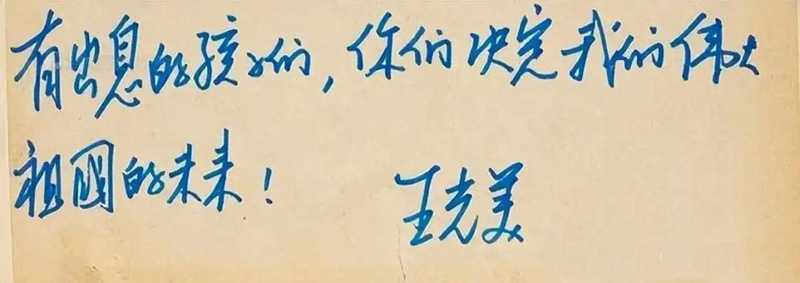 有出息的孩子们,你们决定我们伟大
祖國的未来!
王光美